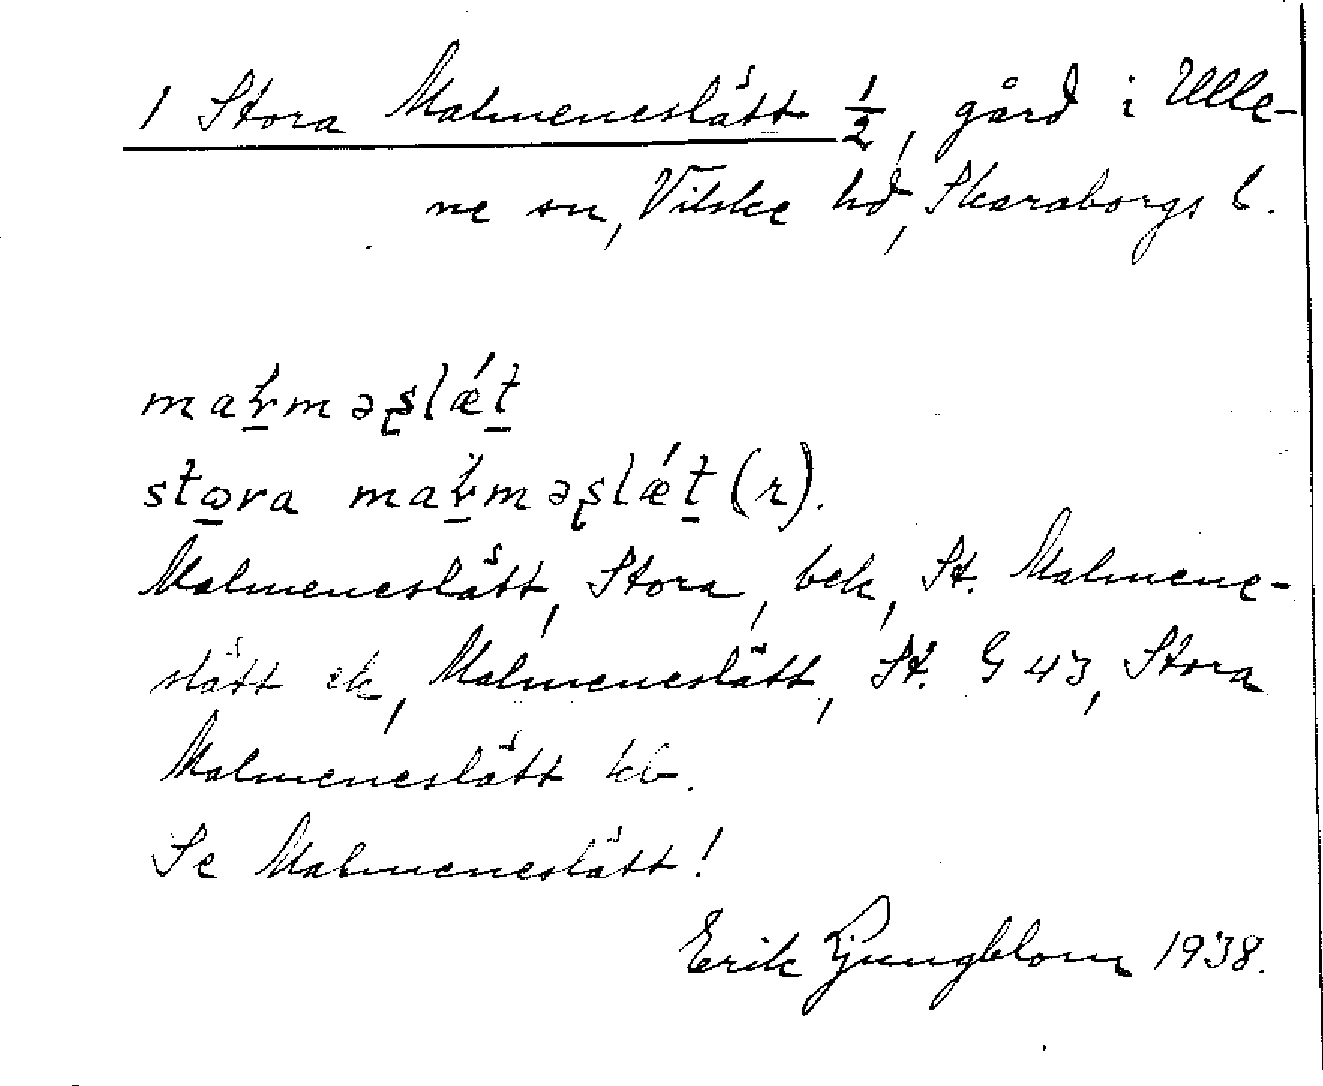 1 Stora Malmeneslätt 1/2, gård i Ulle-
ne sn, Vilske hd, Skaraborgs l.
stora
Malmeneslätt, Stora, bek, St. Malmene-
slätt ek, Malmeneslätt, St. G 43, Stora
Malmeneslätt kb.
Se Malmeneslätt!
Erik Ljungblom 1938.